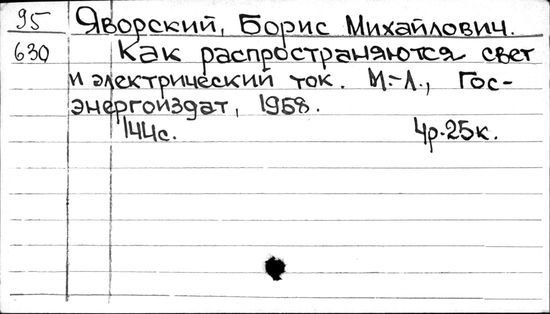 95 Яворский, Борис Михайлович.
630 Как распространяются свет
и электрический ток. М.-Л., Гос-
энергоиздат, 1958.
144с. 4р.25к.